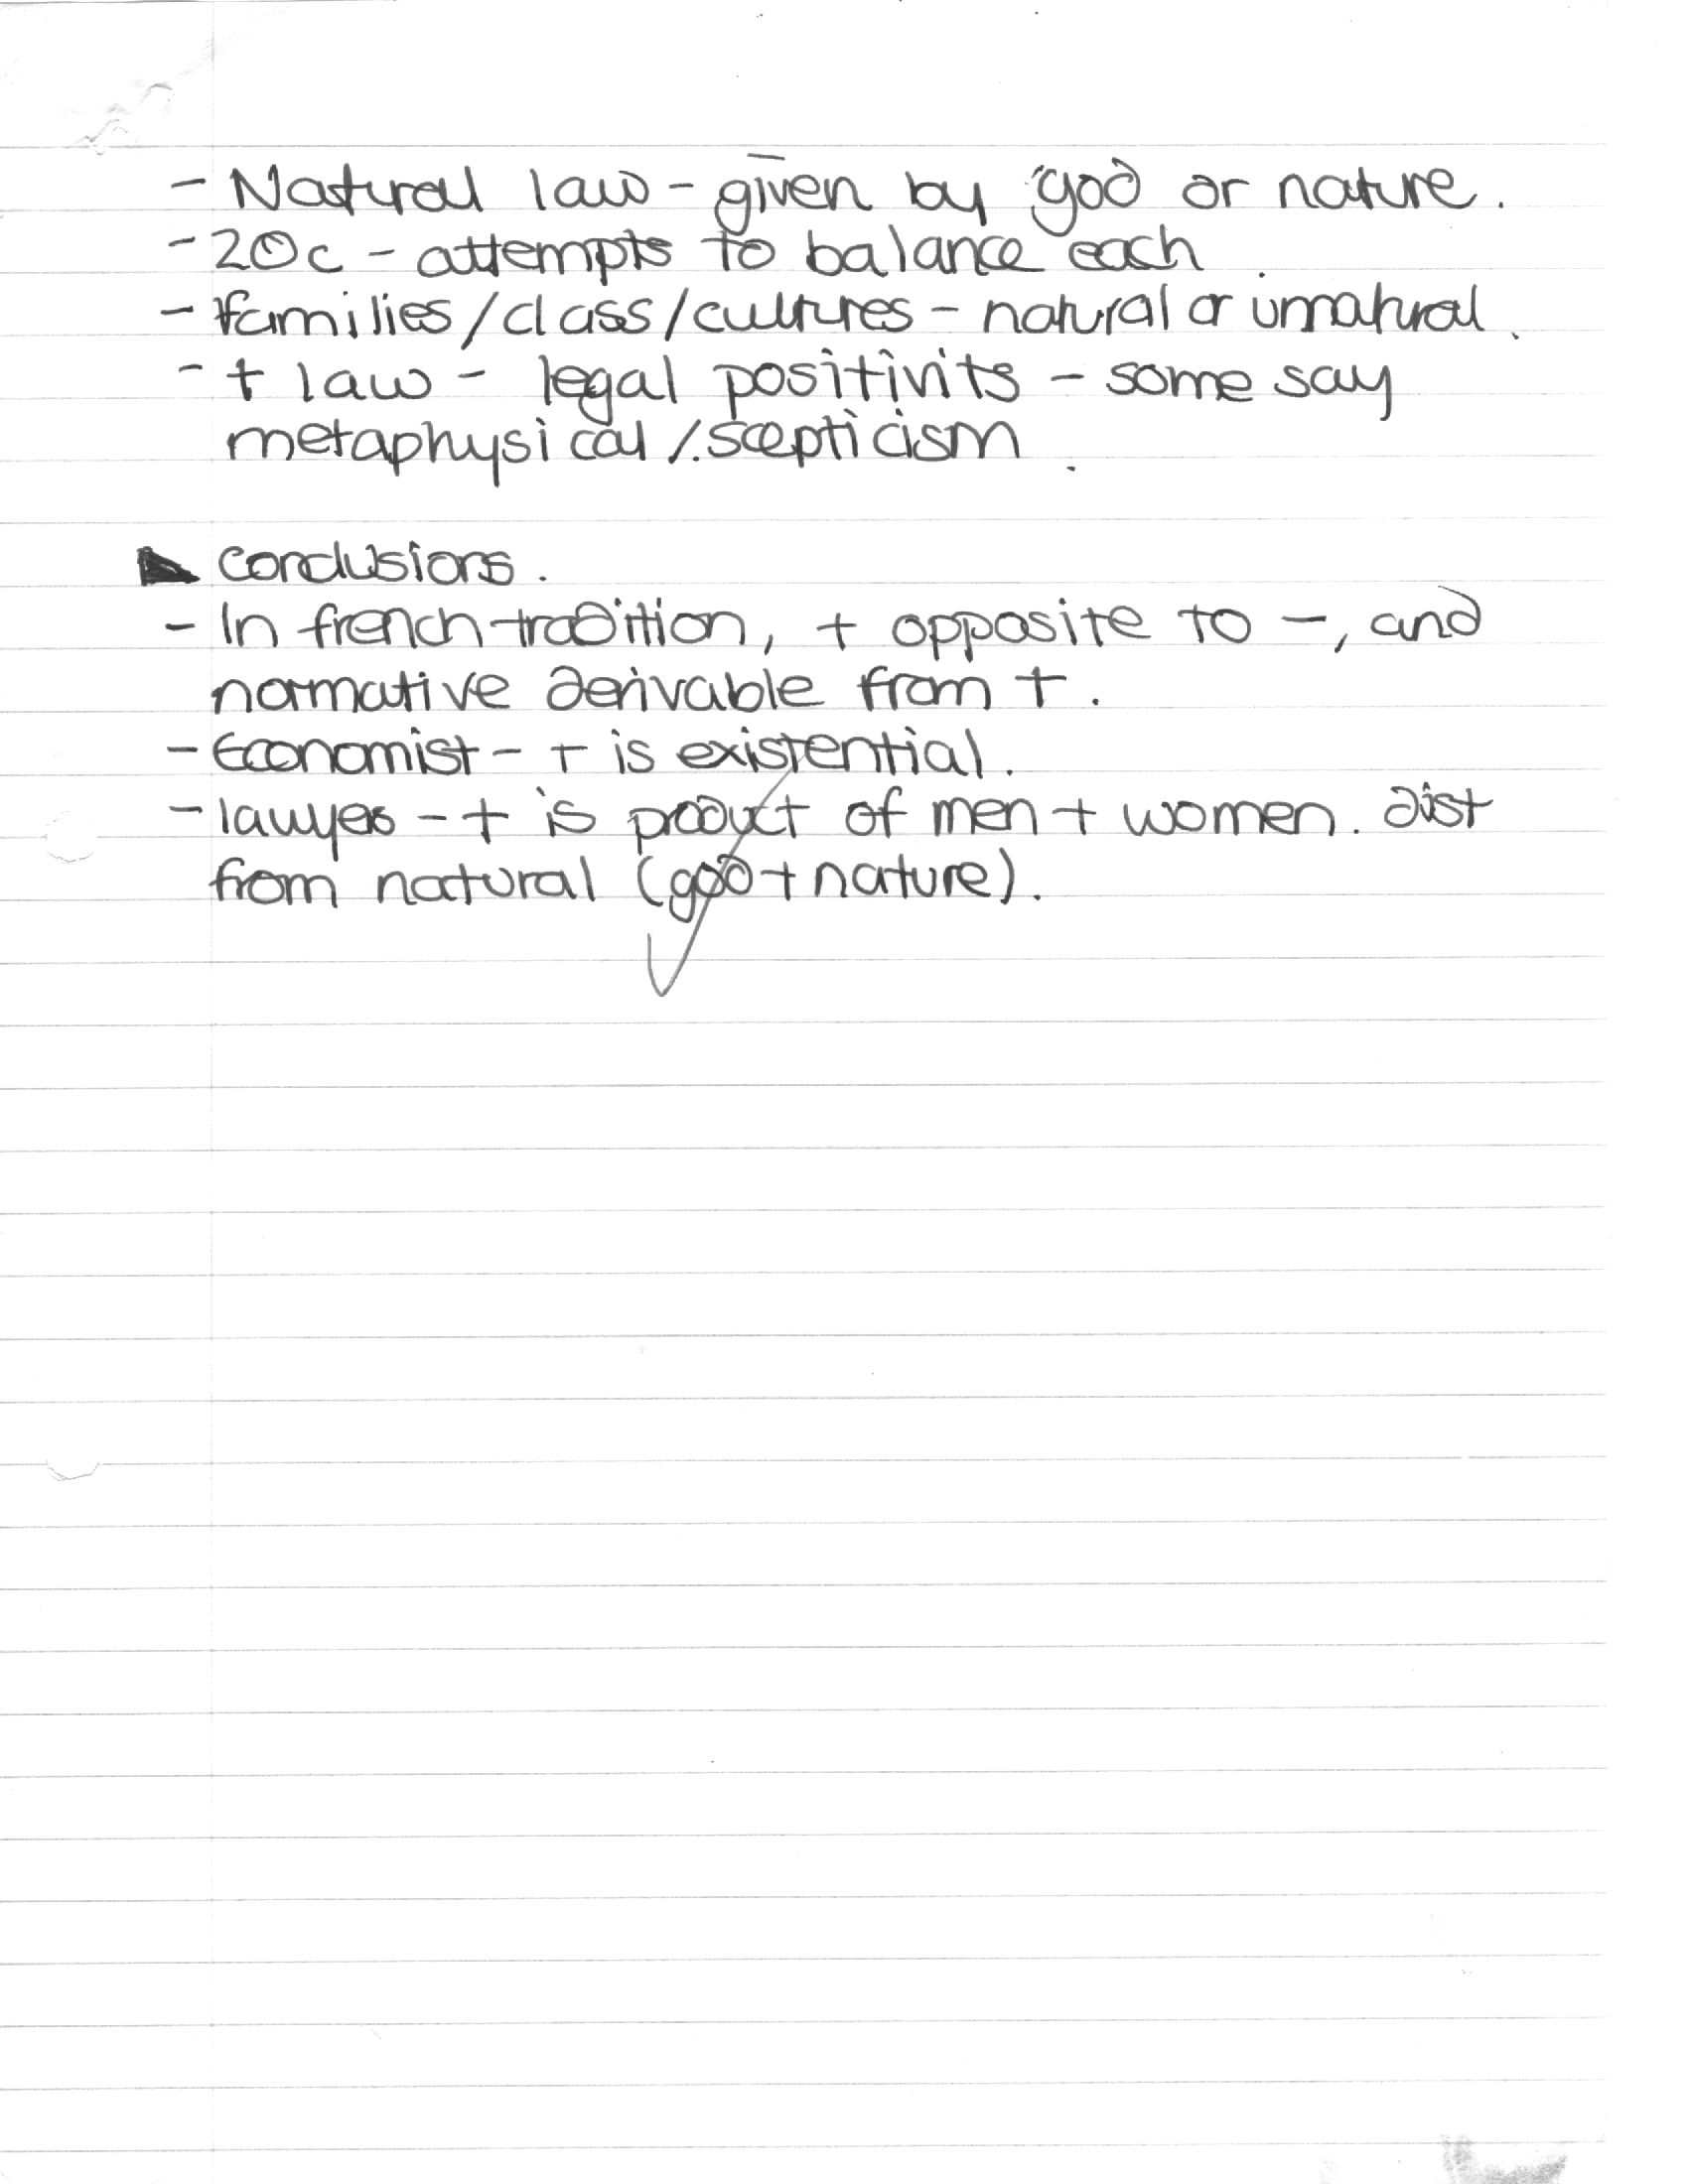 - Natural law - given by god or nature.
- 20c - attempts to balance each.
- families/class/cultures - natural or unnatural.
- + law - legal positivits - some say
metaphysical/scepticism.
conclusions.
- In french tradition, + opposite to -, and
normative derivable from +.
- Economist - + is existential.
- lawyers - + is product of men + women. dist
from natural (god + nature).